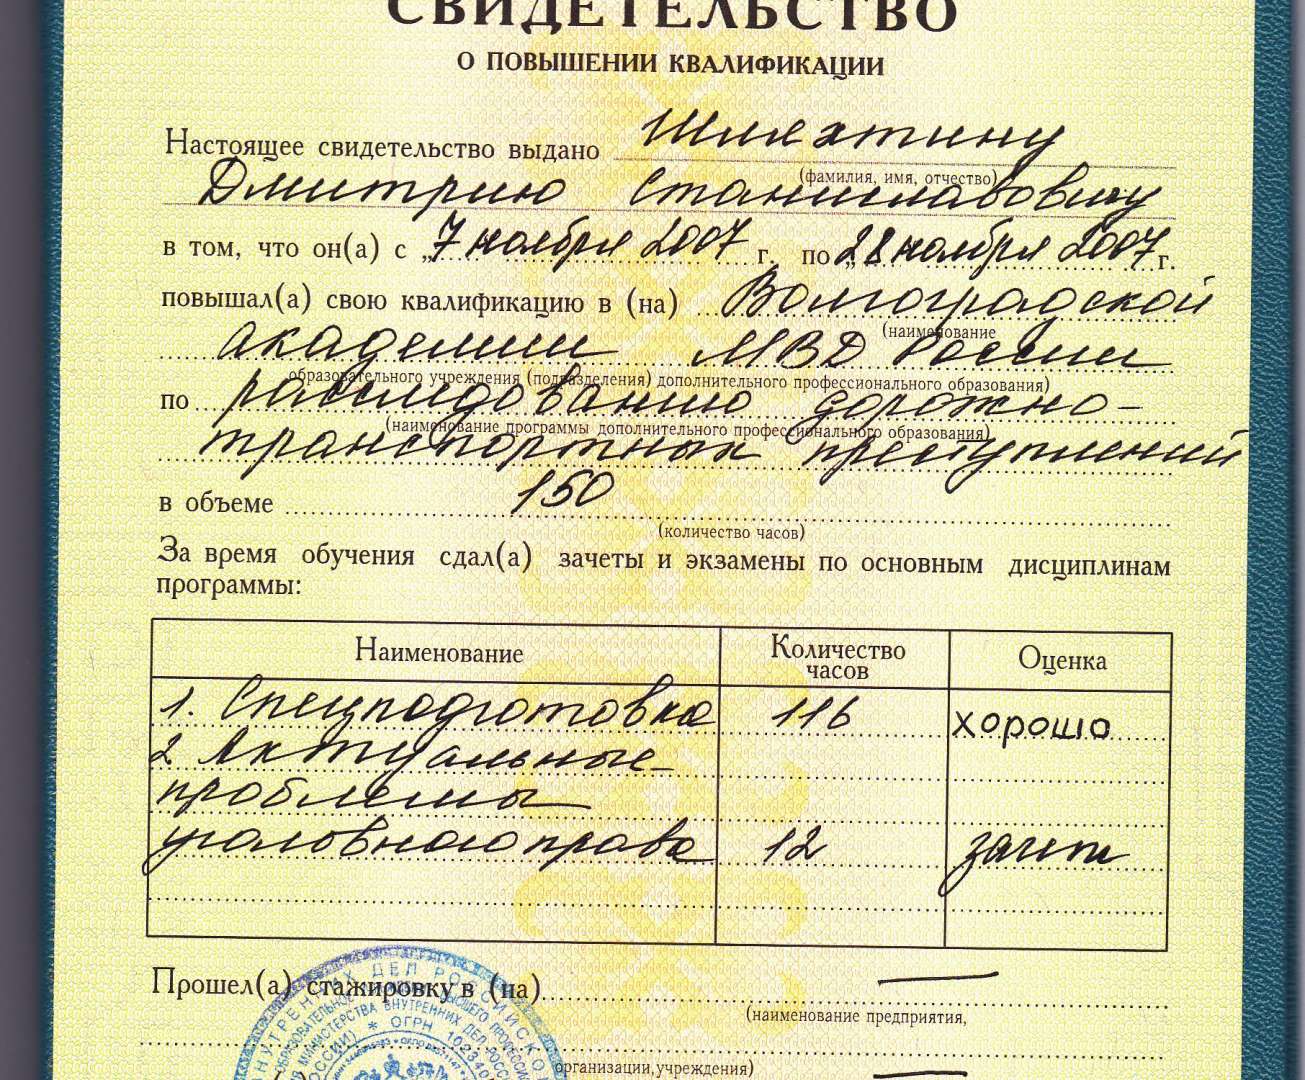 СВИДЕТЕЛЬСТВО
О ПОВЫШЕНИИ КВАЛИФИКАЦИИ
Настоящее свидетельство выдано Шляхтину
(фамилия, имя, отчество)
Дмитрию Станиславовичу
в том, что он(а) с „7 ноября 2007 г. по „28 ноября 2007 г.
повышал(а) свою квалификацию в (на) Волгоградской
(наименование
академии МВД России
образовательного учреждения (подразделения) дополнительного профессионального образования)
по расследованию дорожно-
(наименование программы дополнительного профессионального образования)
транспортных преступлений
в объеме 150
(количество часов)
За время обучения сдал(а) зачеты и экзамены по основным дисциплинам
программы:
Наименование Количество часов Оценка
1. Спецподготовка 116 хорошо
2 Актуальные
проблемы
уголовного права 12 зачет
Прошел(а) стажировку в (на) —
(наименование предприятия,
организации, учреждения)
ВНУТРЕННИХ ДЕЛ РОССИЙСКОЙ
МИНИСТЕРСТВА ВНУТРЕННИХ ДЕЛ
РОССИИ) * ОГРН 102340